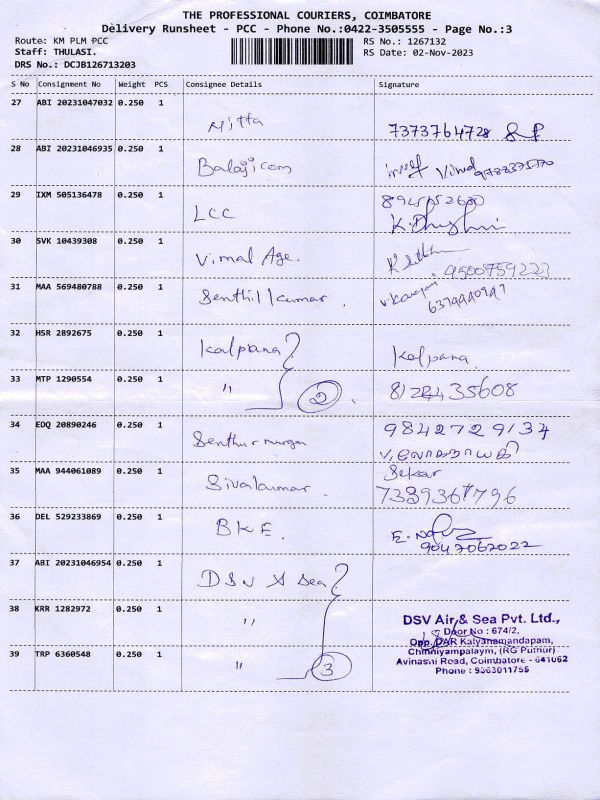 THE PROFESSIONAL COURIERS, COIMBATORE
Delivery Runsheet - PCC - Phone No.:0422-3505555 - Page No.:3
Route: KM PLM PCC RS No.: 1267132
Staff: THULASI. RS Date: 02-Nov-2023
DRS No.: DCJB126713203
S No Consignment No Weight PCS Consignee Details Signature
27 ABI 20231047032 0.250 1 Nitta 7373764728
28 ABI 20231046935 0.250 1 Balaji com
29 IXM 505136478 0.250 1 LCC
30 SVK 10439308 0.250 1 Vimal Age. 9500759223
31 MAA 569480788 0.250 1 Senthil kumar.
32 HSR 2892675 0.250 1 Kalpana Kalpana
33 MTP 1290554 0.250 1 " 2 8128435608
34 EDQ 20890246 0.250 1 Senthur murgan 9842729134
35 MAA 944061089 0.250 1 Sivakumar. Sekar
36 DEL 529233869 0.250 1 BKE. 9047062022
37 ABI 20231046954 0.250 1 DSV & Sea
38 KRR 1282972 0.250 1 "
39 TRP 6360548 0.250 1 " 3
DSV Air & Sea Pvt. Ltd.,
Door No : 674/2,
Opp. DAR Kalyanamandapam,
Chinniyampalaym, (RG Puthur)
Avinashi Road, Coimbatore - 641062
Phone : 9363011755